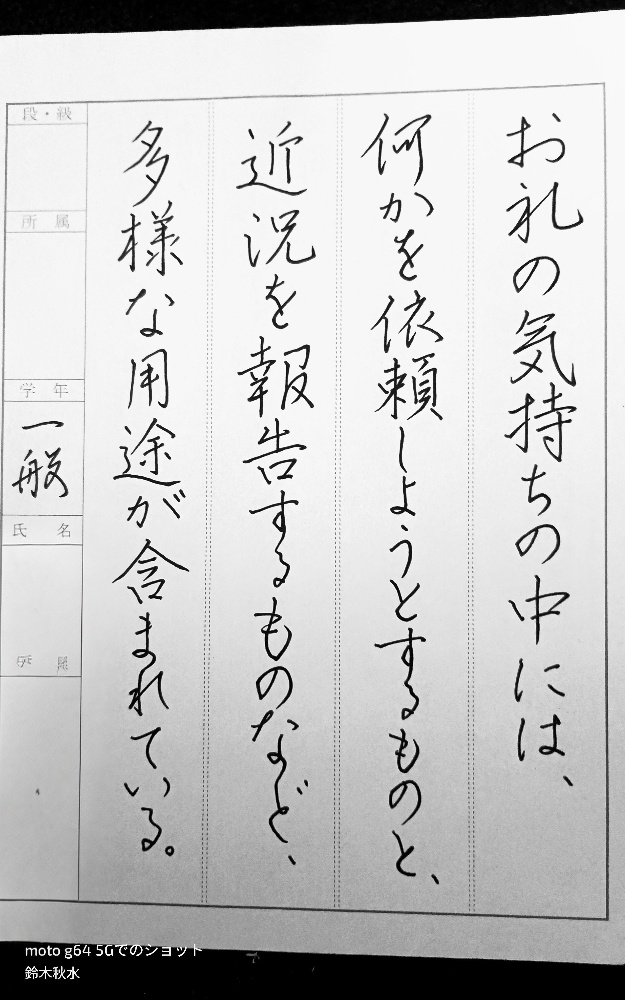 お礼の気持ちの中には、
何かを依頼しようとするものと、
近況を報告するものなど、
多様な用途が含まれている。
段・級
所属
学年
一般
氏名
moto g64 5Gでのショット
鈴木秋水